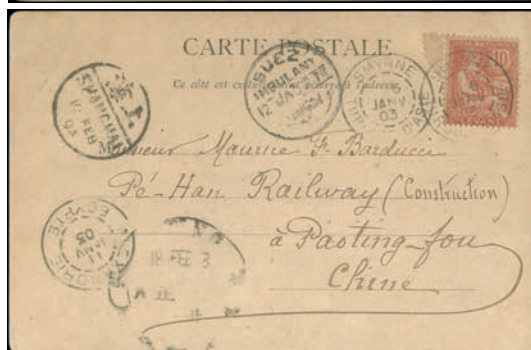 CARTE POSTALE
Ce côté est exclusivement réservé à l'adresse
SUEZ
AMBULANT
12 JA
SMYRNE
JANV
03
10
SHANGHAI
FEB
03
Monsieur Maurice F. Barducci
Pé-Han Railway (Construction)
à Paoting-fou
Chine
EGYPTE
11
JANV
03
18 FEB 3